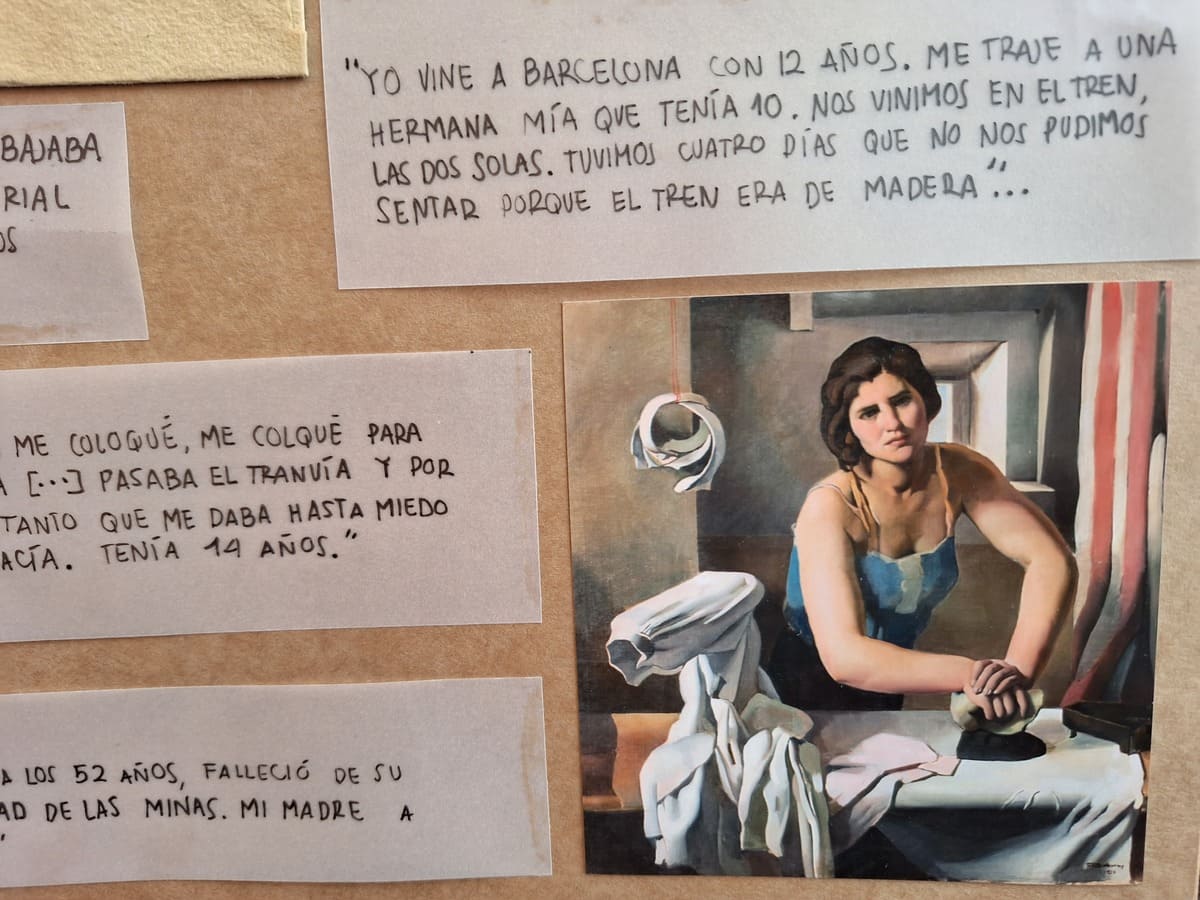 "YO VINE A BARCELONA CON 12 AÑOS. ME TRAJE A UNA
HERMANA MÍA QUE TENÍA 10. NOS VINIMOS EN EL TREN,
LAS DOS SOLAS. TUVIMOS CUATRO DÍAS QUE NO NOS PUDIMOS
SENTAR PORQUE EL TREN ERA DE MADERA"...
BAJABA
RIAL
OS
ME COLOQUÉ, ME COLQUÉ PARA
A [...] PASABA EL TRANVÍA Y POR
TANTO QUE ME DABA HASTA MIEDO
ACÍA. TENÍA 14 AÑOS."
A LOS 52 AÑOS, FALLECIÓ DE SU
AD DE LAS MINAS. MI MADRE A
"